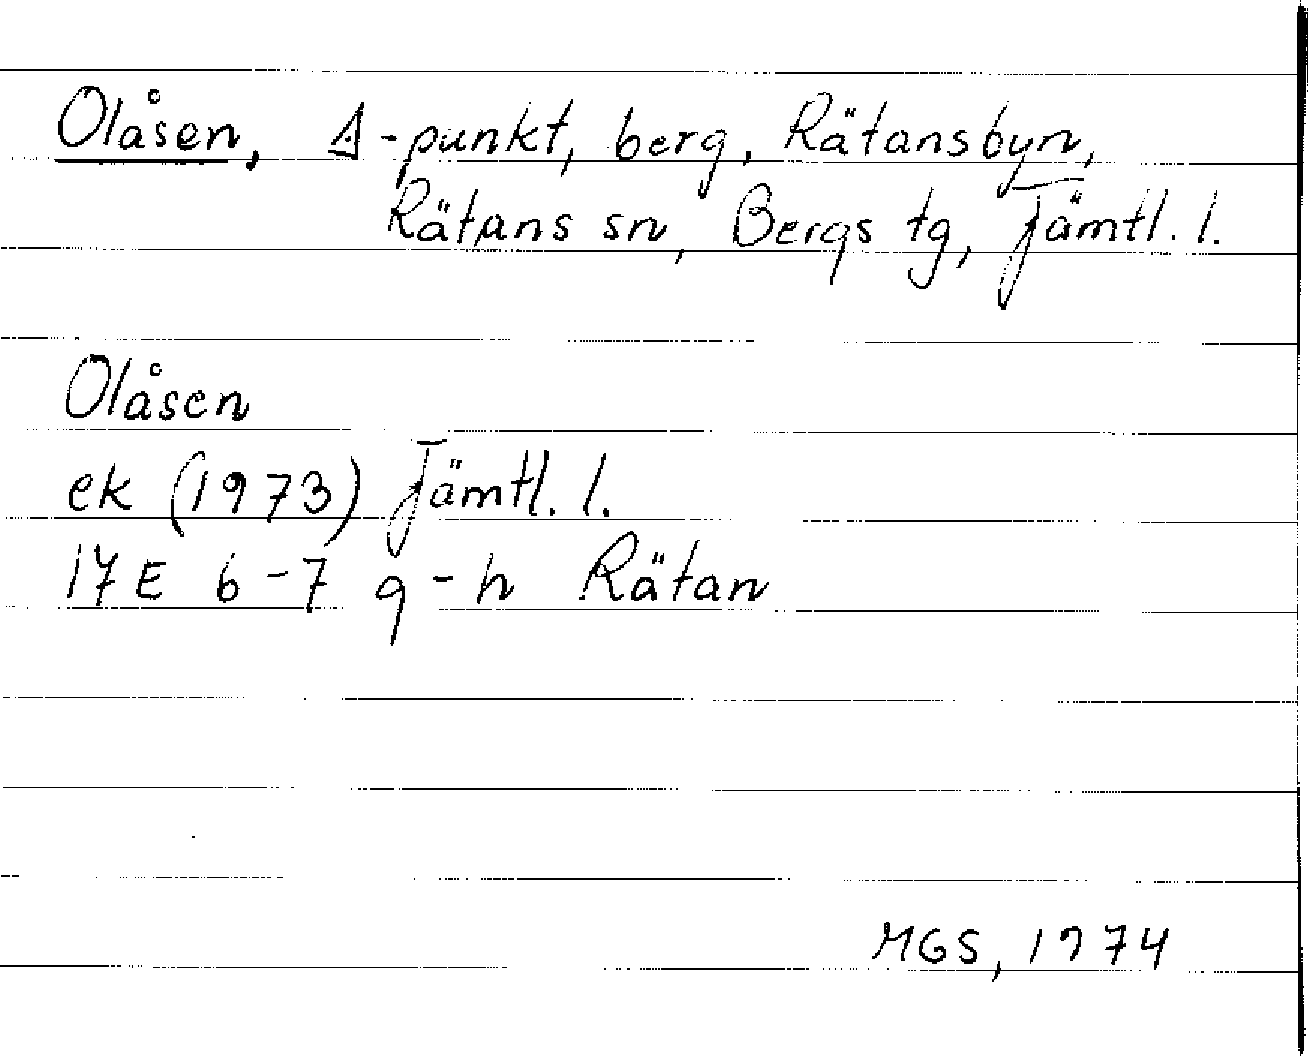 Olåsen, Δ-punkt, berg, Rätansbyn,
Rätans sn, Bergs tg, Jämtl. l.
Olåsen
ek (1973) Jämtl. l.
17E 6-7 g-h Rätan
MGS, 1974